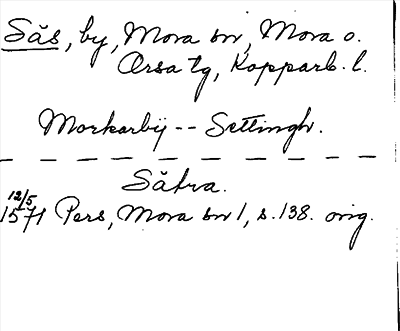 Säs, by, Mora sn, Mora o.
Orsa tg, Kopparb. l.
Morkarby -- Settingh.
Sätra.
12/5
1571 Pers, Mora sn 1, s. 138. orig.